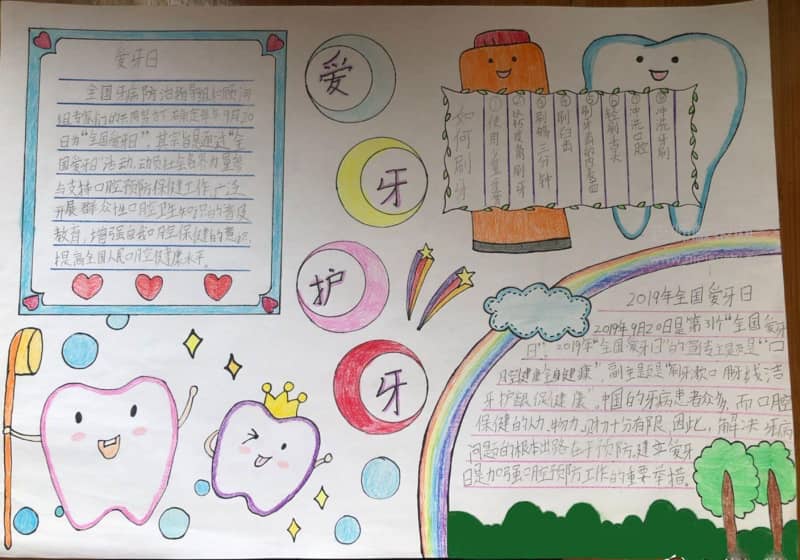 爱牙日
全国牙病防治指导组
组专家们的共同努力下确定每年9月20
日为“全国爱牙日”,其宗旨是通过“全
国爱牙日”活动,动员社会各界力量参
与支持口腔预防保健工作,广泛
开展群众性口腔卫生知识的普及
教育,增强自我口腔保健的意识,
提高全国人民口腔健康水平。
爱
牙
护
牙
如何刷牙
①使用
刷牙
③刷牙三分钟
④刷臼齿
⑤刷牙齿的内表面
⑥轻刷舌头
⑦冲洗口腔
⑧冲洗牙刷
2019年全国爱牙日
2019年9月20日是第31个“全国爱牙
日”。2019年“全国爱牙日”的宣传主题是“口
腔健康全身健康”,副主题是“刷牙漱口用线洁
牙护龈保健康”。中国的牙病患者众多,而口腔
保健的人力、物力、财力十分有限,因此,解决牙病
问题的根本出路在于预防,建立爱牙
日是加强口腔预防工作的重要举措。